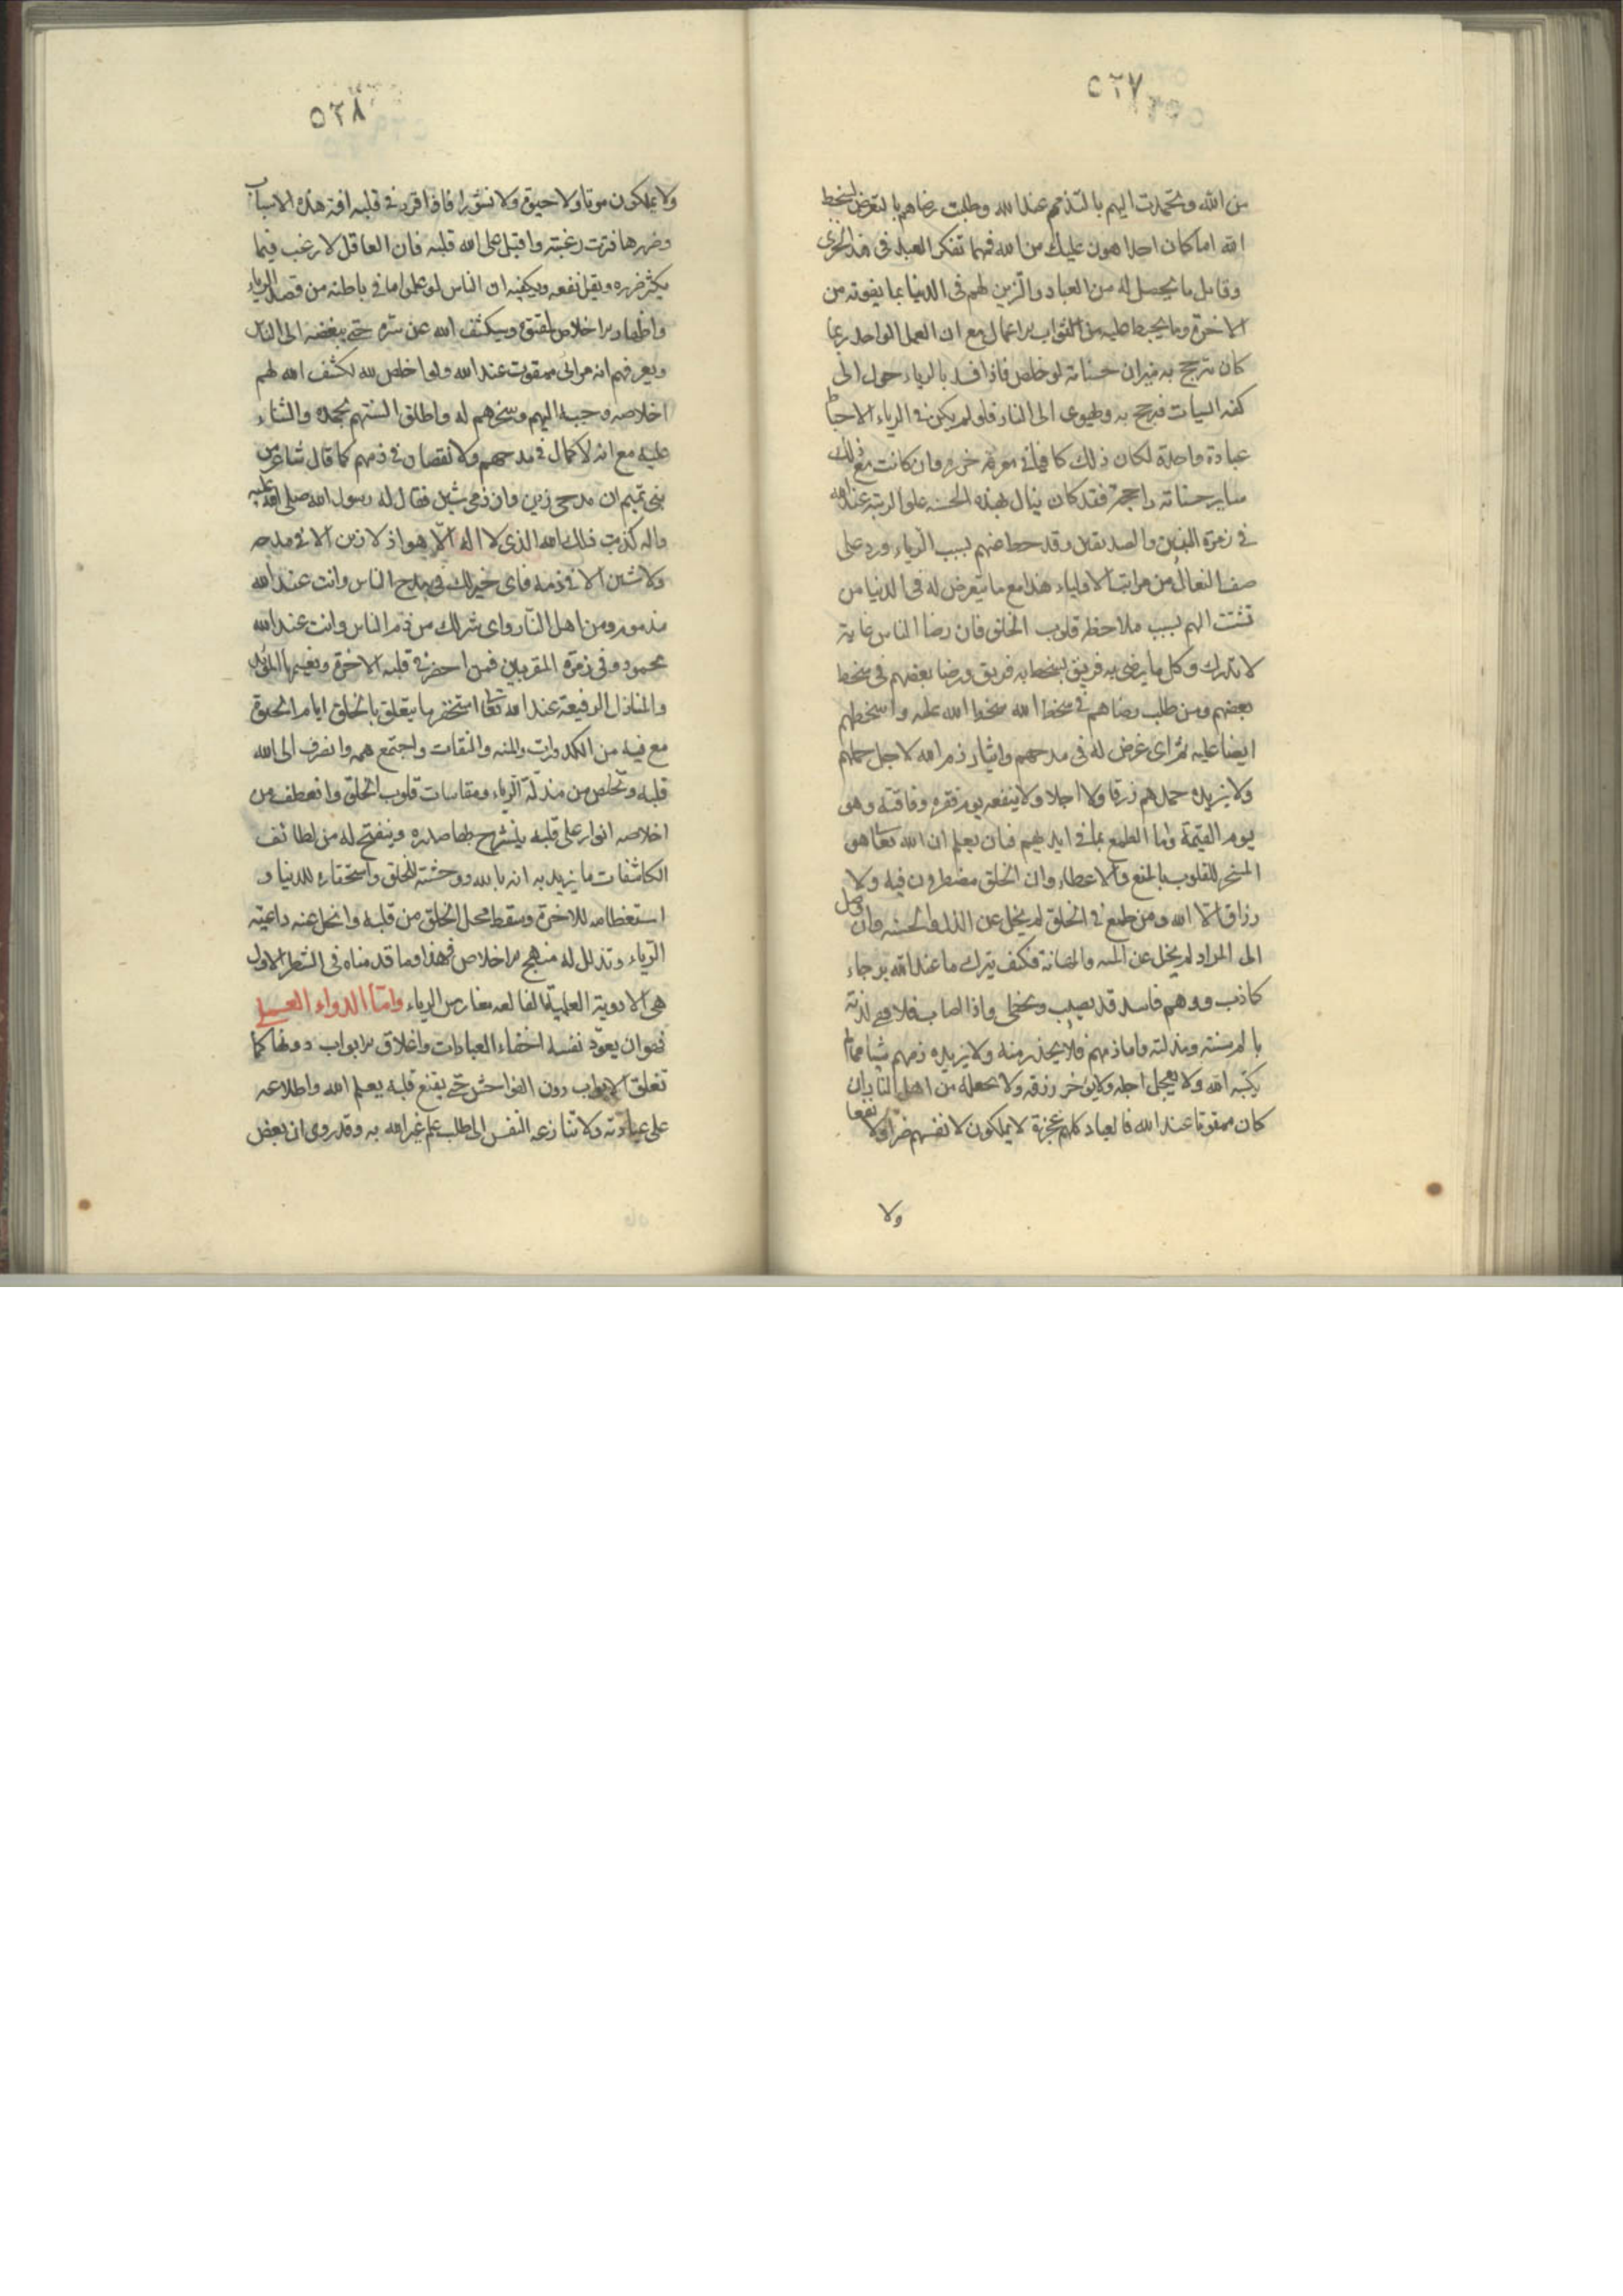 ٥٢٧
من الله وتحمدت اليهم بالتذمم عند الله وطلبت رضاهم بالتعرض لسخط
الله اما كان احد اهون عليك من الله فمهما تفكر العبد في هذا الخزى
وقابل ما يحصل له من العباد والتزين لهم فى الدنيا بما يفوته من
الاخرة وما يحبط عليه من الثواب الاعمال مع ان العمل الواحد ربما
كان ترجح به ميزان حسناته لو خلص فاذا فسد بالرياء حول الى
كفه السيات فترجح به ويهوى الى النار فلو لم يكن فى الرياء الا احباط
عبادة واحدة لكان ذلك كافيا فى معرفه ضرره وان كانت مع ذلك
ساير حسناته راجحة فقد كان ينال بهذه الحسنه علو الرتبة عند الله
فى زمرة النبيين والصديقين وقد حط عنهم بسبب الرياء ورد على
صف النعال من مراتب الاولياء هذا مع ما يتعرض له فى الدنيا من
تشتت الهم بسبب ملاحظه قلوب الخلق فان رضا الناس غاية
لا تدرك وكل ما يرضى به فريق يسخط به فريق ورضا بعضهم فى سخط
بعضهم ومن طلب رضاهم فى سخط الله سخط الله عليه واسخطهم
ايضا عليه ثم اى غرض له فى مدحهم وايثار ذم الله لاجل حمدهم
ولا يزيده حمدهم رزقا ولا اجلا ولا ينفعه يوم فقره وفاقته وهو
يوم القيمة واما الطمع بما فى ايديهم فان يعلم ان الله تعا هو
المسخر للقلوب بالمنع والاعطاء وان الخلق مضطرون فيه ولا
رزاق الا الله ومن طمع فى الخلق لم يخل عن الذل والخسه وان وصل
الى المراد لم يخل عن المنه والمهانة فكيف يترك ما عند الله برجاء
كاذب ووهم فاسد قد يصيب ويخطى واذا اصاب فلا تفى لذته
بالم منته ومذلته واما ذمهم فلا يحذر منه ولا يزيده ذمهم شيا مما لم
يكتبه الله ولا يعجل اجله ولا يؤخر رزقه ولا يجعله من اهل النار ان
كان ممقوتا عند الله فالعباد كلهم عجزة لا يملكون لانفسهم ضرا ولا نفعا
ولا
٥٢٨
ولا يملكون موتا ولا حيوة ولا نشورا فاذا قرر فى قلبه افة هذه الاسباب
وضررها فترت رغبته واقبل على الله قلبه فان العاقل لا يرغب فيما
يكثر ضرره ويقل نفعه ويكفيه ان الناس لو علموا ما فى باطنه من قصد الرياء
واظهار الاخلاص لمقتوه وسيكشف الله عن سره حتى يبغضه الى الناس
ويعرفهم انه مرائى ممقوت عند الله ولو اخلص لله لكشف الله لهم
اخلاصه وحببه اليهم وسخرهم له واطلق السنتهم بحمده والثناء
عليه مع انه لا كمال فى مدحهم ولا نقصان فى ذمهم كما قال شاعر من
بنى تميم ان مدحى زين وان ذمى شين فقال له رسول الله صلى الله عليه
واله كذبت ذلك الله الذى لا اله الا هو اذ لا زين الا فى مدحه
ولا شين الا فى ذمه فاى خير لك فى مدح الناس وانت عند الله
مذموم ومن اهل النار واى شر لك من ذم الناس وانت عند الله
محمود وفى زمرة المقربين فمن احضر فى قلبه الاخرة ونعيمها المؤبد
والمنازل الرفيعة عند الله تعا استحقر ما يتعلق بالخلق ايام الحيوة
مع فيه من الكدورات والمنه والمنقات واجتمع همه وانصرف الى الله
قلبه وتخلص من مذلة الرياء ومقاسات قلوب الخلق وانعطف من
اخلاصه انوار على قلبه ينشرح بها صدره وينفتح له من لطائف
الكاشفات ما يزيد به انسه بالله ووحشته للخلق واستحقاره للدنيا و
استعظامه للاخرة وسقط محل الخلق من قلبه وانحل عنه داعية
الرياء وتذلل له منهج الاخلاص فهذا وما قدمناه فى الشطر الاول
هى الادوية العلمية القالعه مغارس الرياء واما الدواء العملى
فهو ان يعود نفسه اخفاء العبادات واغلاق الابواب دونها كما
تغلق الابواب دون الفواحش حتى يقنع قلبه بعلم الله واطلاعه
على عبادته ولا تنازعه النفس الى طلب علم غير الله به وقد روى ان بعض